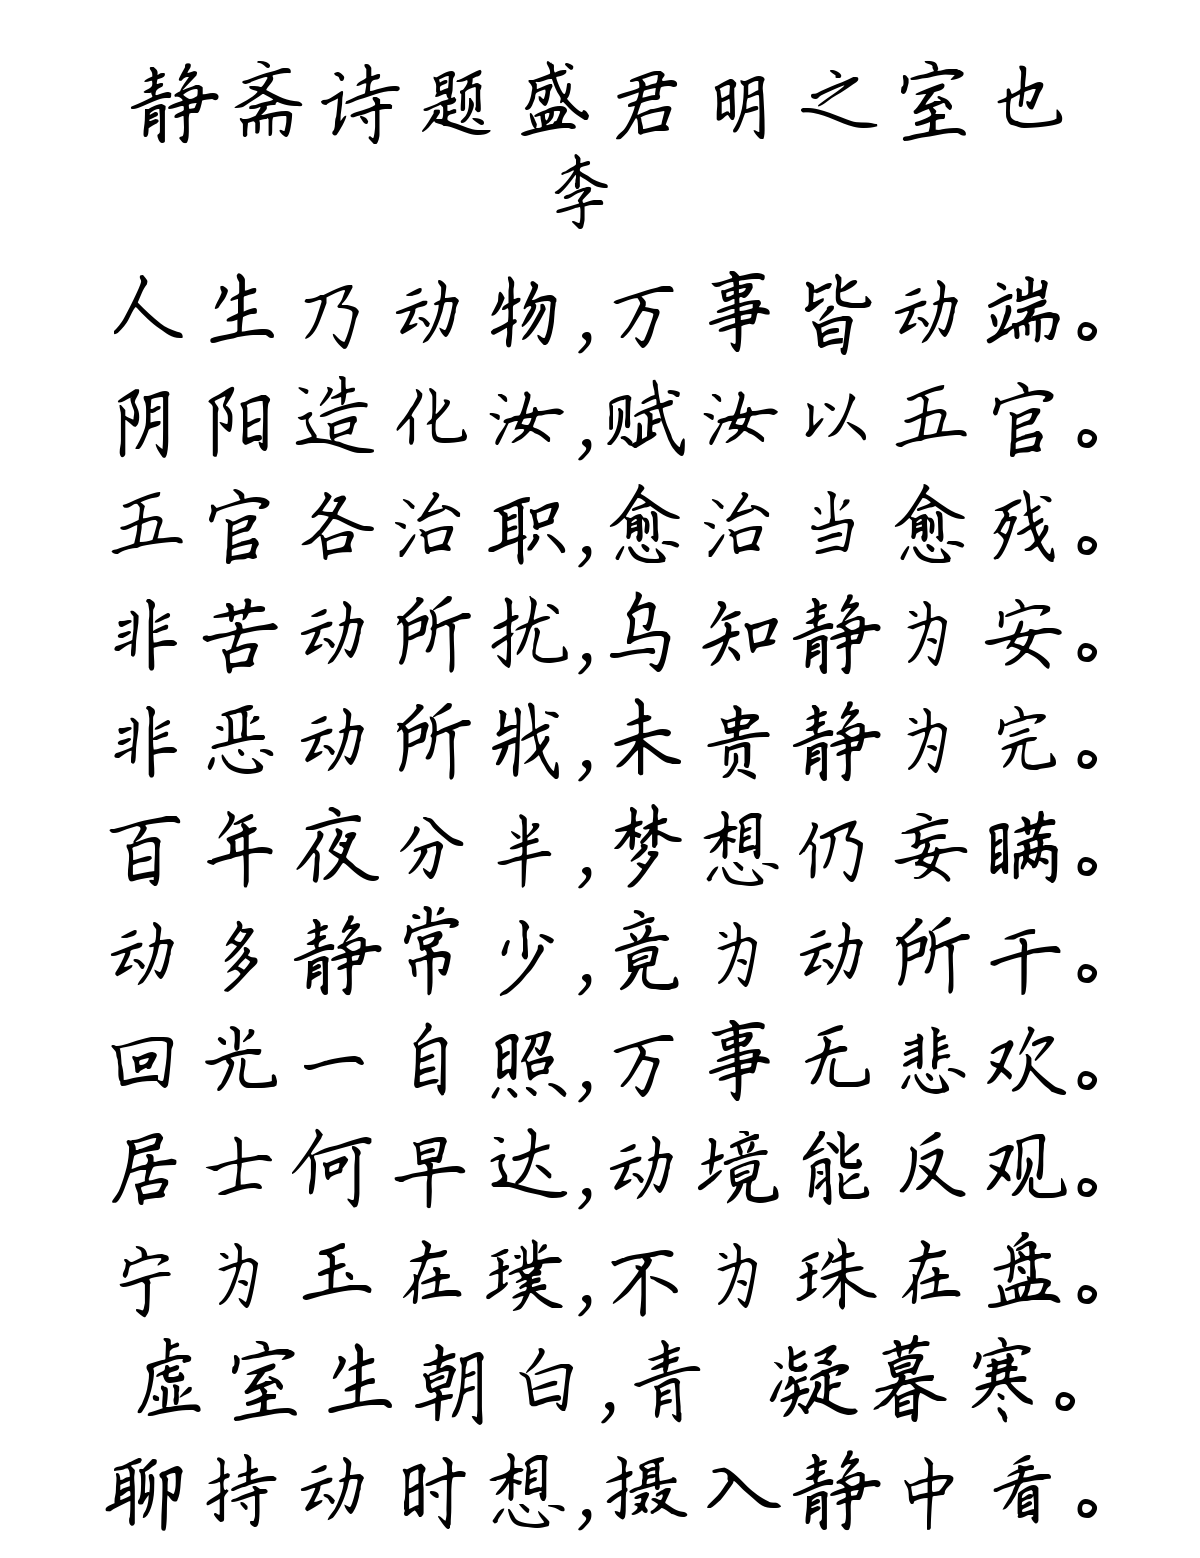 静斋诗题盛君明之室也
李
人生乃动物,万事皆动端。
阴阳造化汝,赋汝以五官。
五官各治职,愈治当愈残。
非苦动所扰,乌知静为安。
非恶动所戕,未贵静为完。
百年夜分半,梦想仍妄瞒。
动多静常少,竟为动所干。
回光一自照,万事无悲欢。
居士何早达,动境能反观。
宁为玉在璞,不为珠在盘。
虚室生朝白,青 凝暮寒。
聊持动时想,摄入静中看。